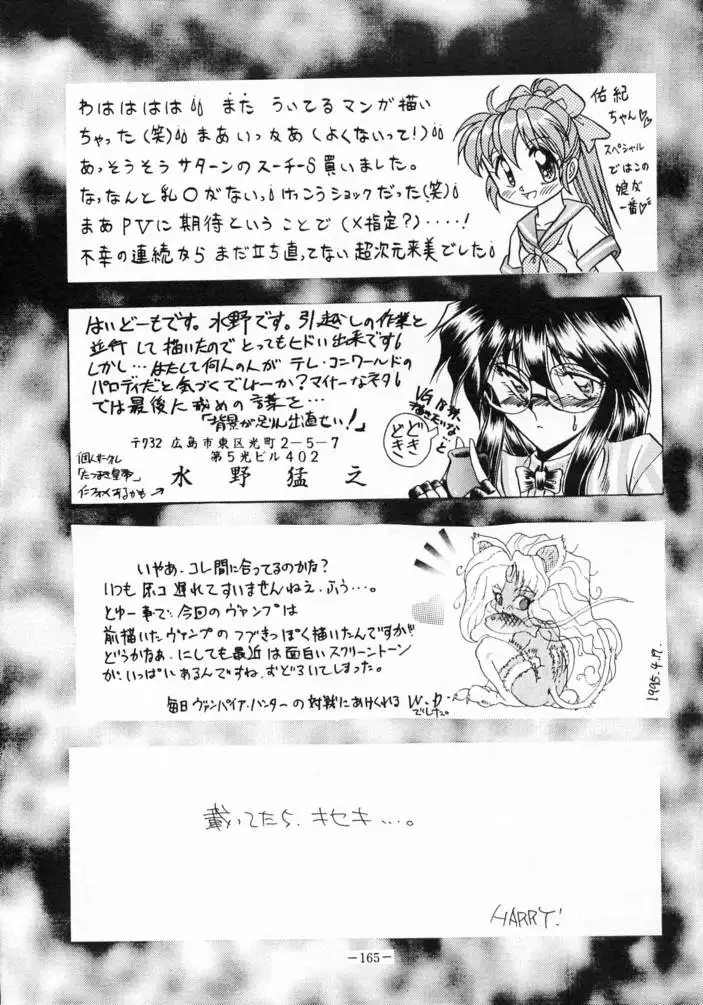 わはははは!! また ういてるマンが描い
ちゃった(笑)!! まあいっかあ(よくないって!)!!
あっそうそう サターンのスーチーS買いました。
なっなんと乳○がないっ!けっこうショックだった(笑)!
まあPVに期待ということで(X指定?)‥‥!
不幸の連続から まだ立ち直ってない 超次元来美でした!
佑紀
ちゃん♡♡
スペシャル
ではこの
娘が
一番♡
はいどーもです。水野です。引越しの作業と
並行して描いたのでとってもヒドい出来です
しかし…はたして何人の人が テレ・コンワールドの
パロディだと気づくでしょーか?マイナーなネタ
では最後に戒めの言葉を…
「背景が足りん出直せい!」
〒732 広島市東区光町2-5-7
第5光ビル402
水野猛之
個人サークル
「たつまき皇帝」
VG
…と
どき
どき
いやあ、コレ間に合ってるのかな?
いつも 遅れてすいませんねえ、ふう…。
とゆー事で、今回のヴァンプは
前描いたヴァンプのつづきっぽく描いたんですが!!
どうかなぁ、にしても最近は面白いスクリーントーン
が、いっぱいあるんですね、おどろいてしまった。
毎日ヴァンパイア・ハンターの対戦にあけくれる W.D
でした。
1995.4.17.
載ってたら、キセキ…。
HARRY!
-165-